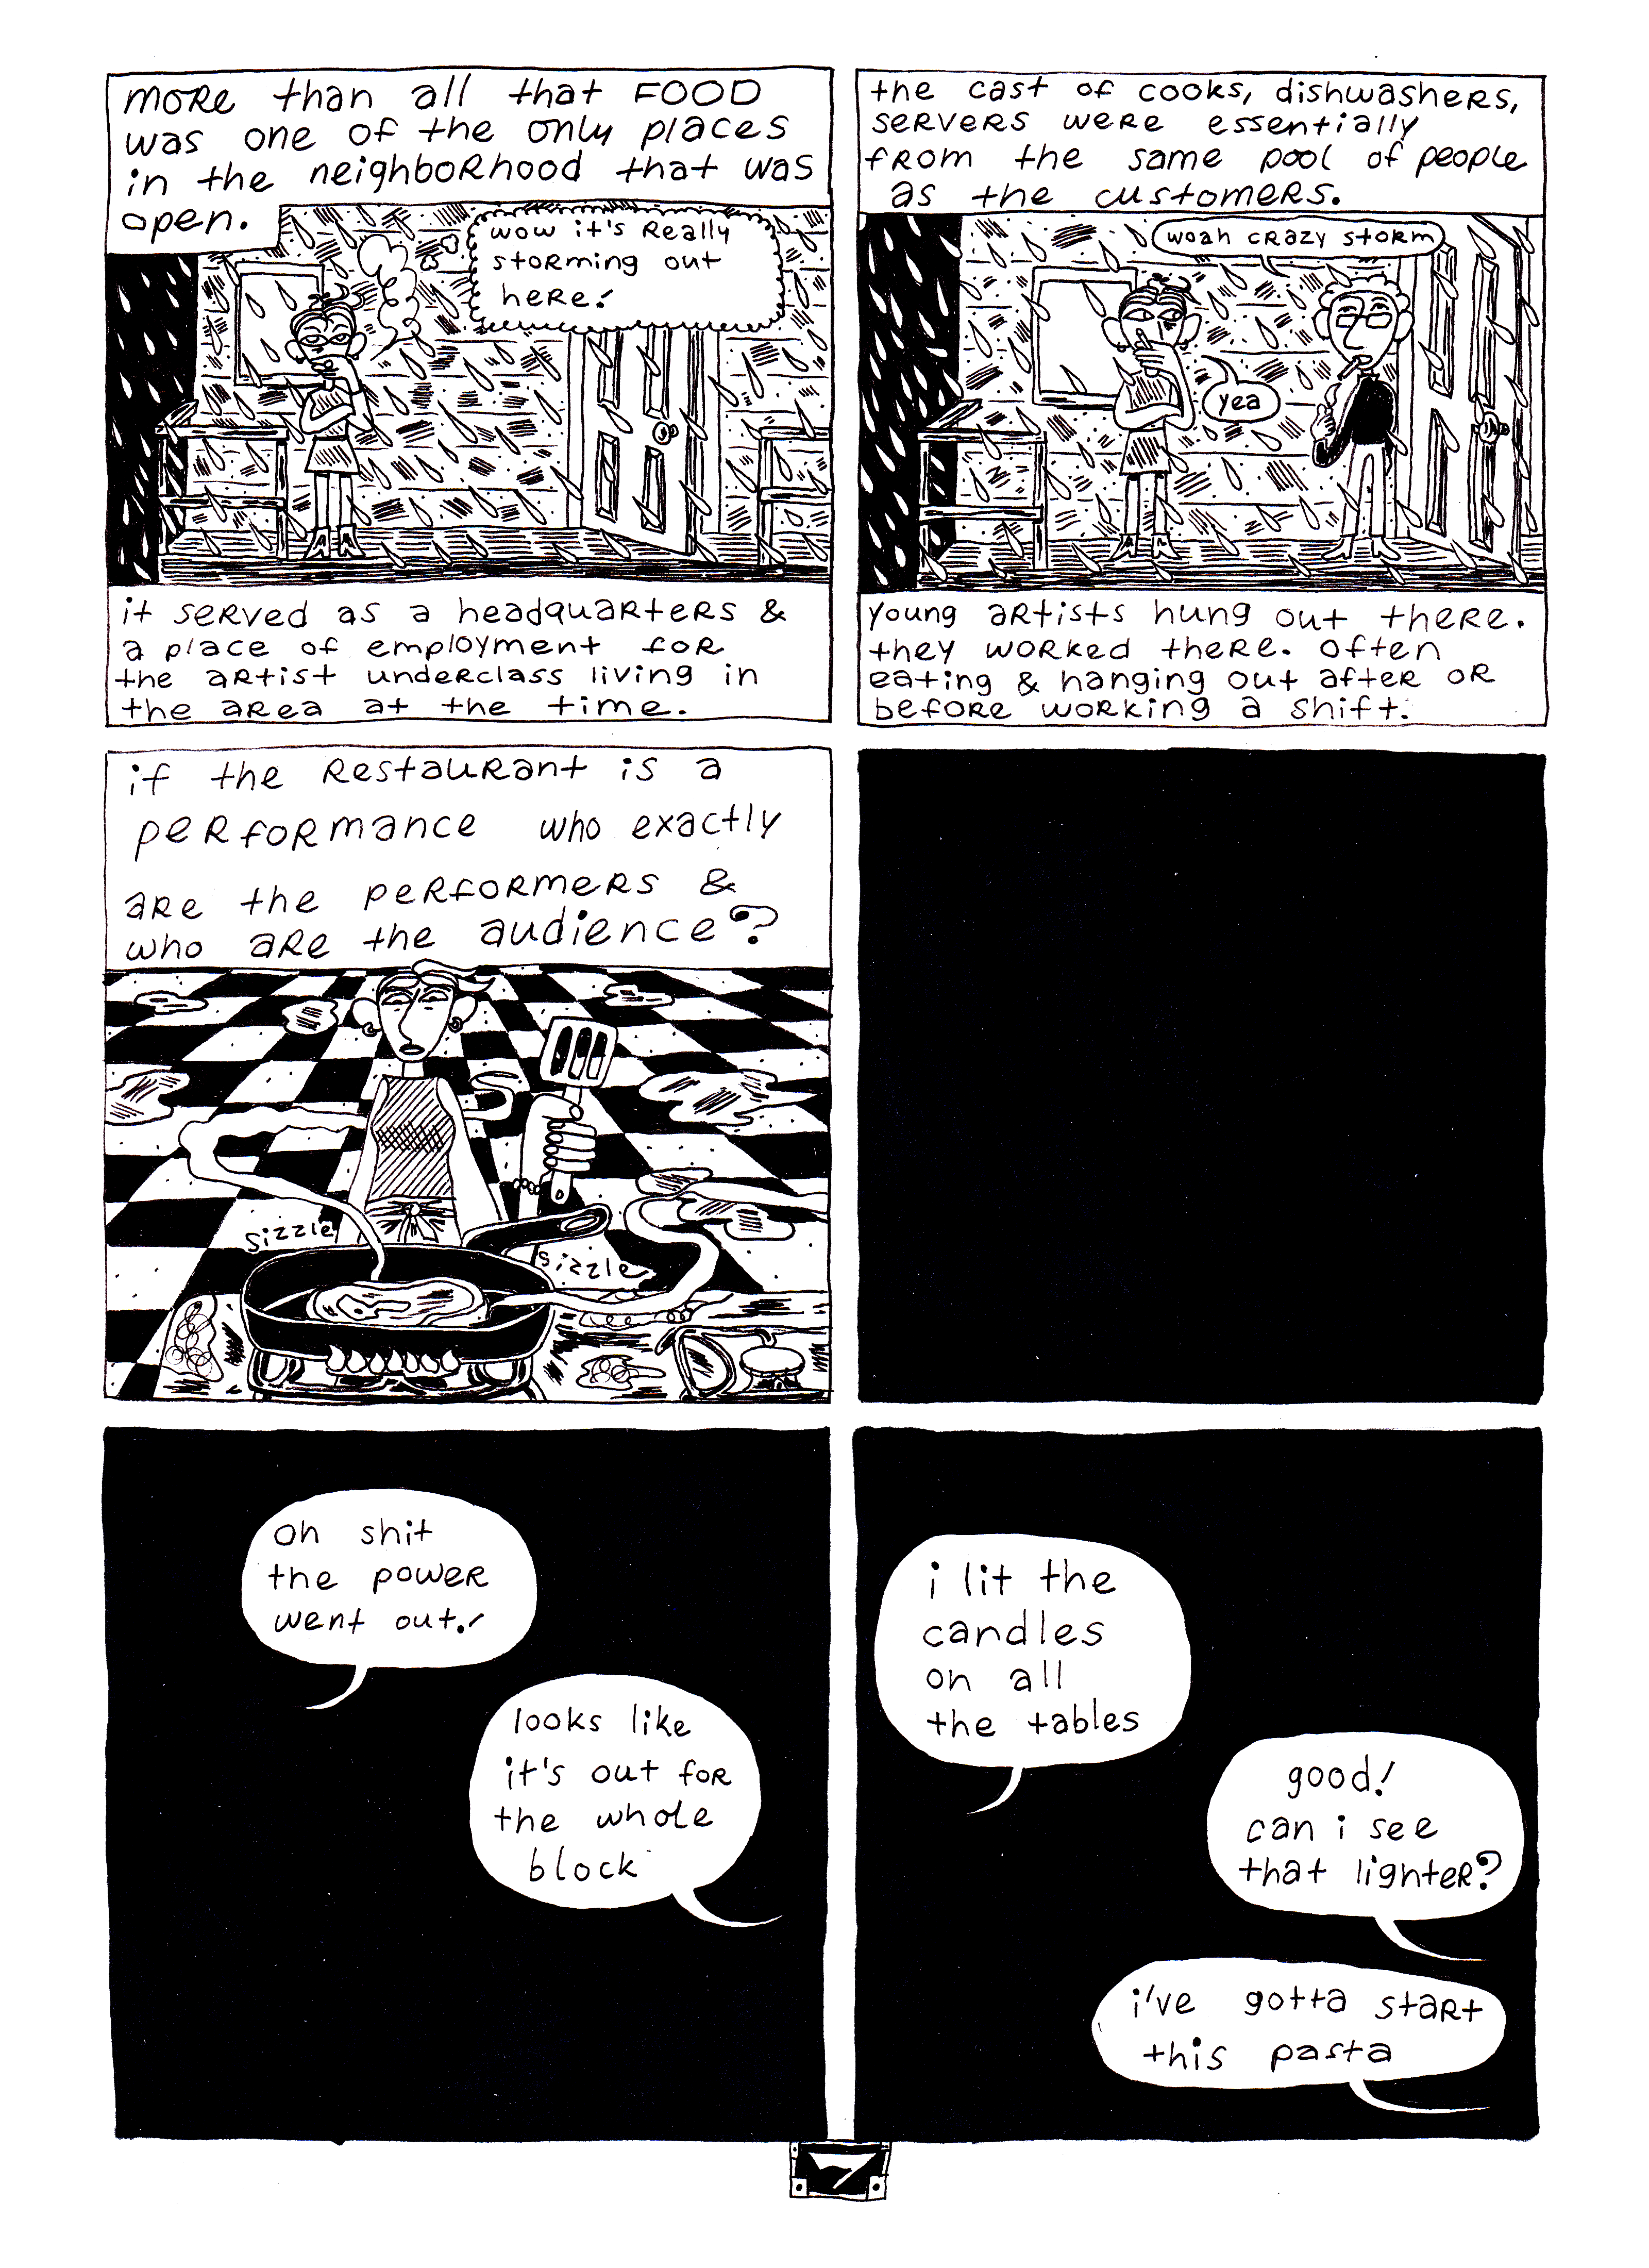 more than all that FOOD
was one of the only places
in the neighborhood that was
open.
wow it's really
storming out
here!
it served as a headquarters &
a place of employment for
the artist underclass living in
the area at the time.
the cast of cooks, dishwashers,
servers were essentially
from the same pool of people
as the customers.
woah crazy storm
yea
young artists hung out there.
they worked there. often
eating & hanging out after or
before working a shift.
if the restaurant is a
performance who exactly
are the performers &
who are the audience?
sizzle
sizzle
oh shit
the power
went out!
looks like
it's out for
the whole
block
i lit the
candles
on all
the tables
good!
can i see
that lighter?
i've gotta start
this pasta
7